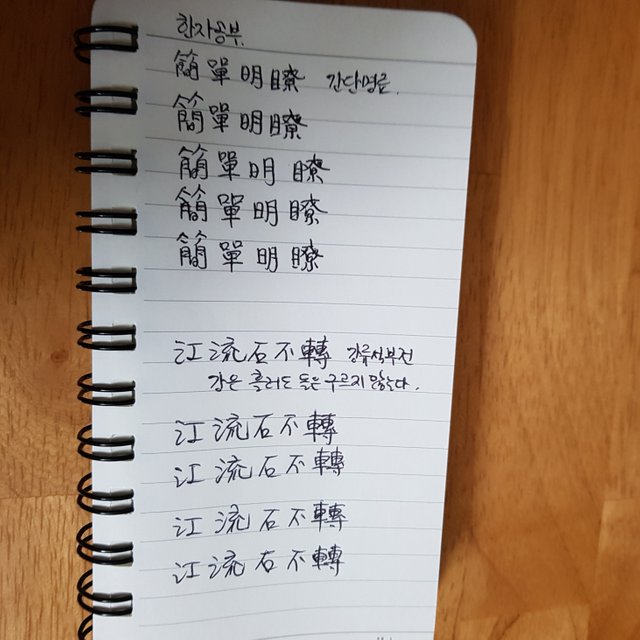 한자공부
簡單明瞭 간단명료.
簡單明瞭
簡單明瞭
簡單明瞭
簡單明瞭
江流石不轉 강류석부전
강은 흘러도 돌은 구르지 않는다.
江流石不轉
江流石不轉
江流石不轉
江流石不轉